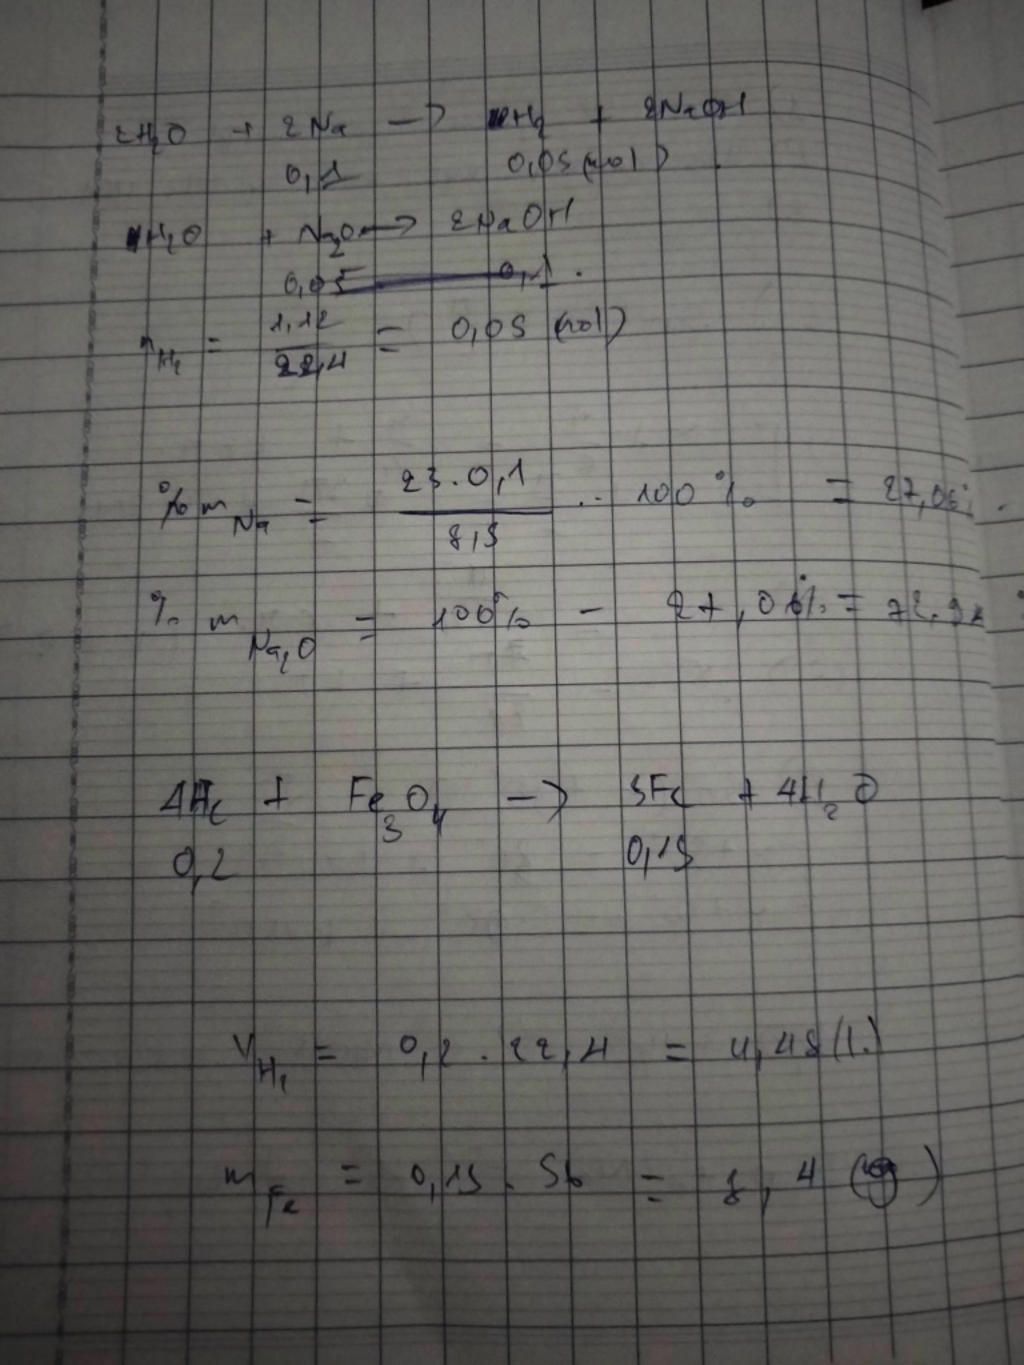 2H2O + 2Na -> H2 + 2NaOH
0,1 0,05 (mol)
H2O + Na2O -> 2NaOH
0,05 0,1
nH2 = 1,12/22,4 = 0,05 (mol)
% mNa = 23.0,1/8,5 . 100% = 27,06%
% mNa2O = 100% - 27,06% = 72,94 %
4H2 + Fe3O4 -> 3Fe + 4H2O
0,2 0,15
VH2 = 0,2 . 22,4 = 4,48 (l)
mFe = 0,15 . 56 = 8,4 (g)